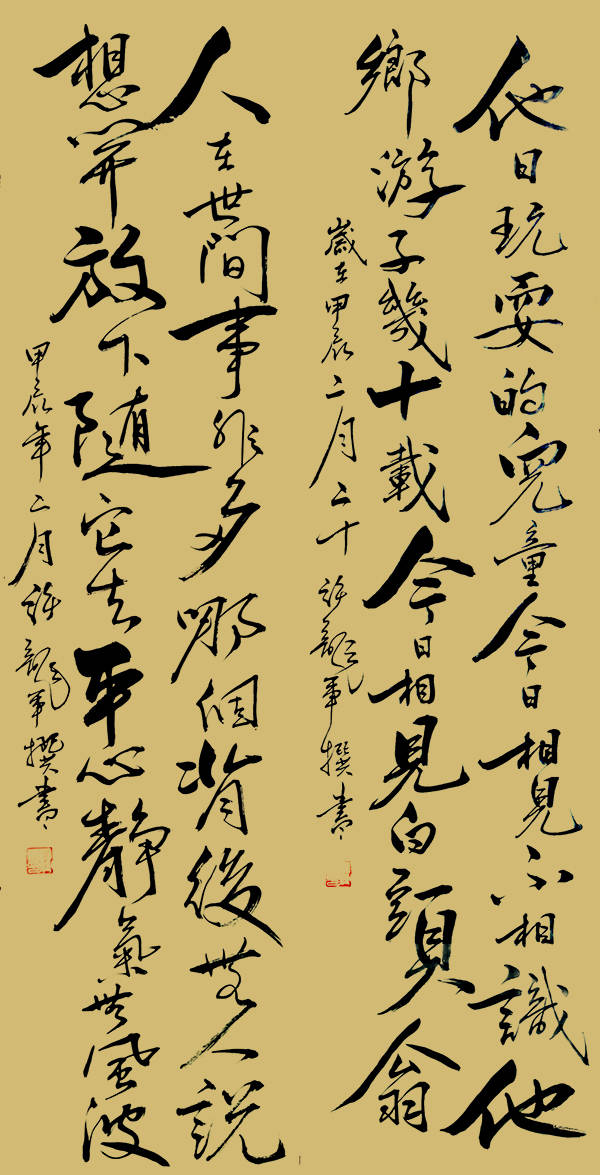 他日玩耍的兒童今日相見不相識他
鄉游子幾十載今日相見白頭翁
歲在甲辰二月二十許龍軍撰書
人在世間事非多哪個背後無人説
想開放下隨它去平心靜氣無風波
甲辰年二月許龍軍撰書